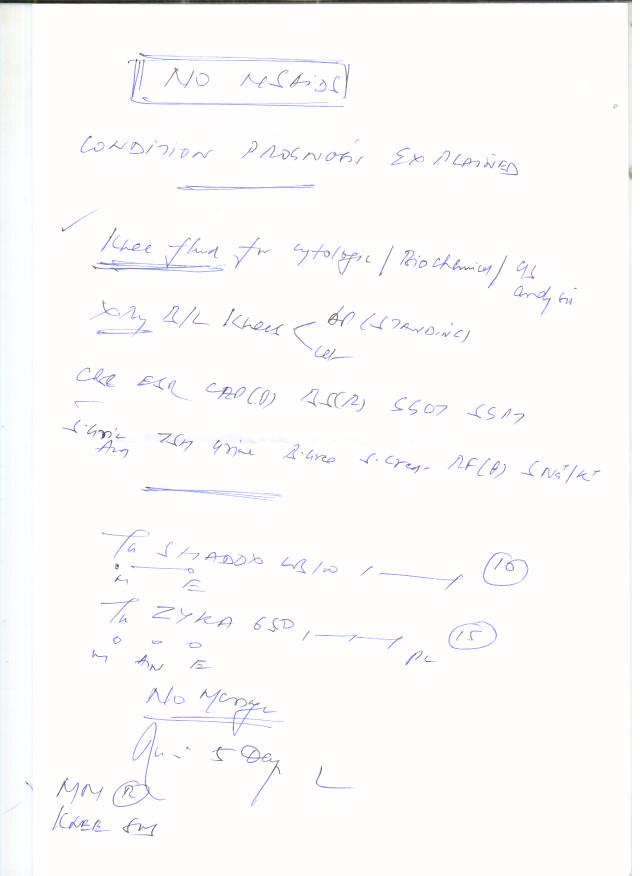 NO NSAIDS
CONDITION PROGNOSIS EXPLAINED
Knee fluid for cytologic / Biochemical / GS
analysis
XRay B/L Knees AP (STANDING)
Lat
CBC ESR CRP(Q) BS(R) SGOT SGPT
S. Uric
Acid Urine B. Urea S. Creat. RF(Q) S Na+/K+
Tab 10
M E
Tab ZYKA 650 15
M AN E
No Massage
5 Day
MM R
KNEE